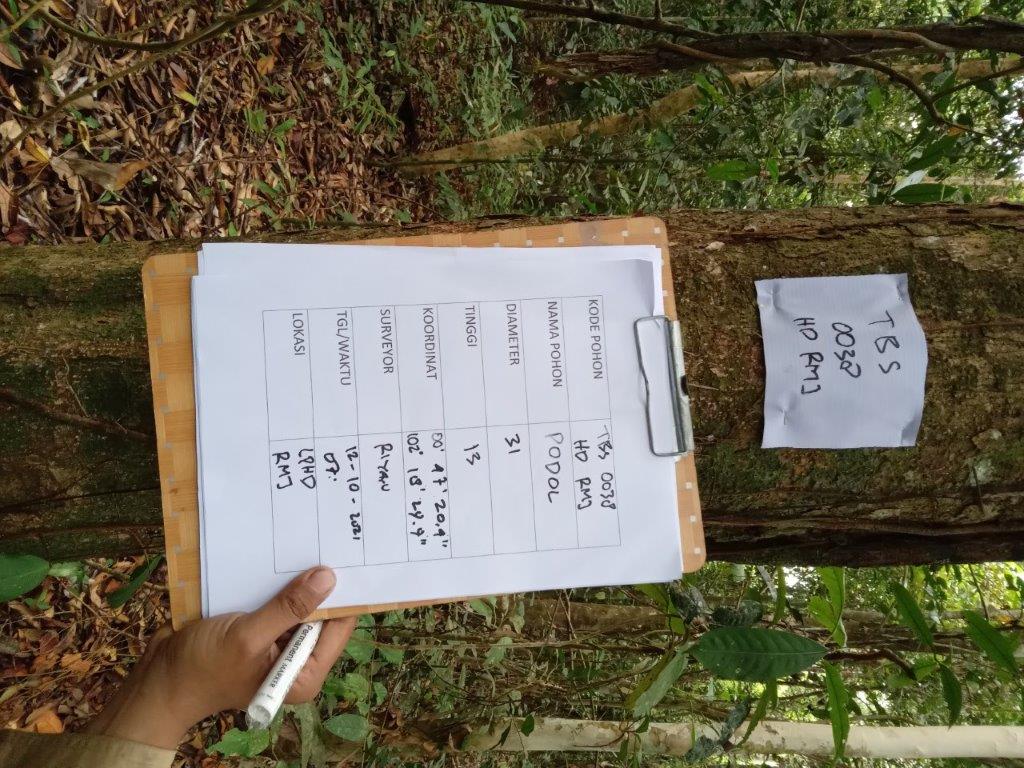 TBS
0038
HD RMJ
KODE POHON TBS 0038
HD RMJ
NAMA POHON PODOL
DIAMETER 31
TINGGI 13
KOORDINAT 00' 47' 20.9"
102' 18' 29.9"
SURVEYOR RIYAN
TGL/WAKTU 12-10-2021
07:
LOKASI LPHD
RMJ
Permanent MARKER